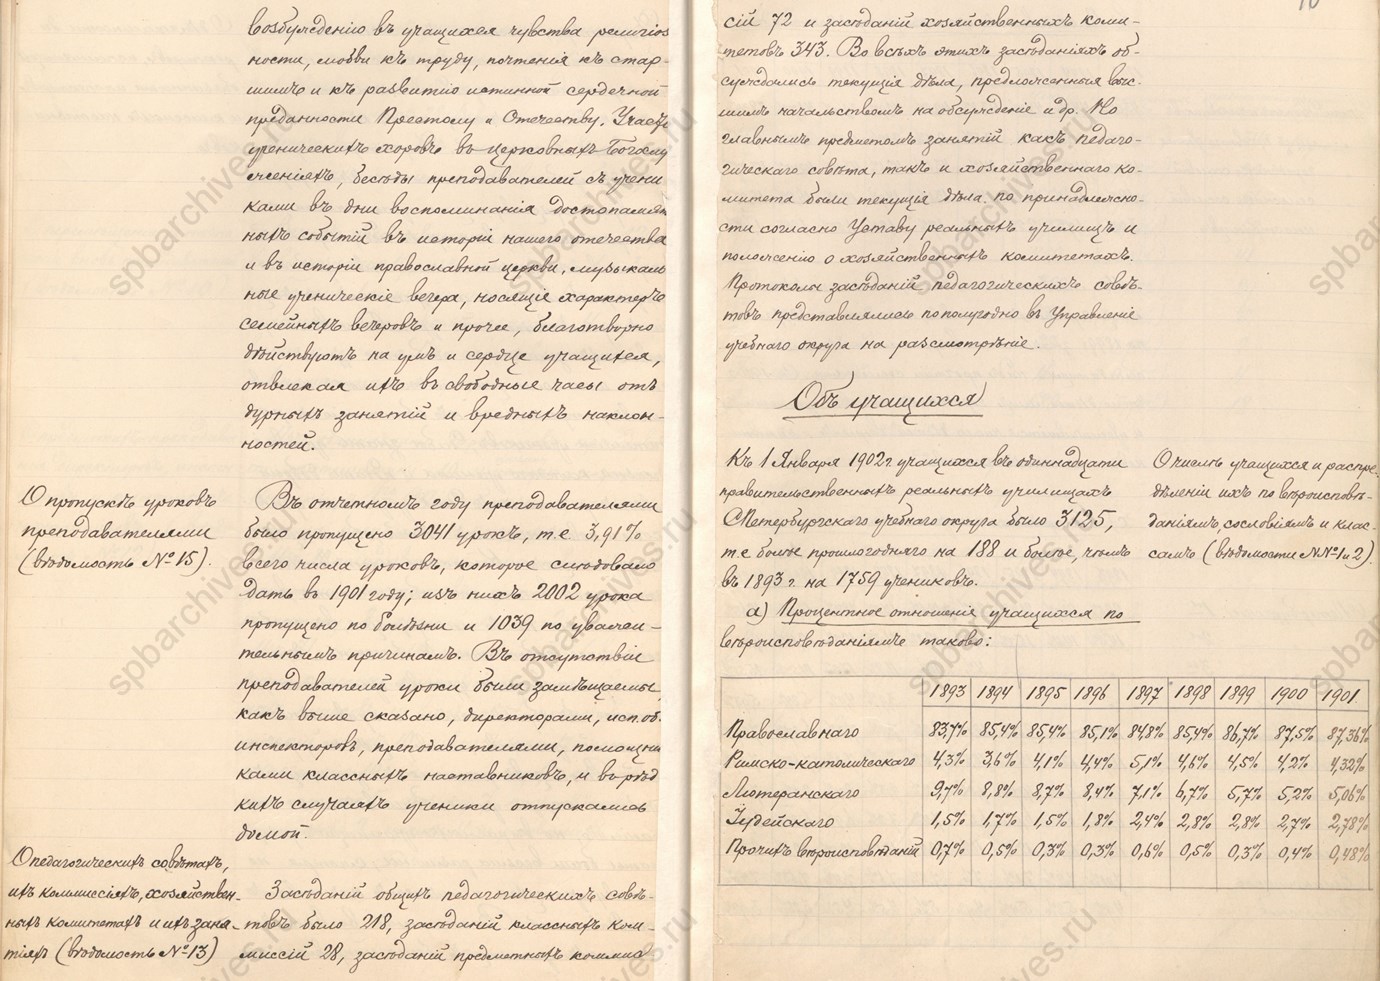 возбужденію въ учащихся чувства религіоз
ности, любви къ труду, почтенія къ стар-
шимъ и къ развитію истинной сердечной
преданности Престолу и Отечеству. Участ
ученическихъ хоровъ въ церковныхъ Богослу
женіяхъ, бесѣды преподавателей съ учени
ками въ дни воспоминанія достопамят
ныхъ событій въ исторіи нашего отечества
и въ исторіи православной церкви, музыкаль
ные ученическіе вечера, носящіе характеръ
семейныхъ вечеровъ и прочее, благотворно
дѣйствуютъ на умъ и сердце учащихся,
отвлекая ихъ въ свободные часы отъ
дурныхъ занятій и вредныхъ наклон-
ностей.
О пропускѣ уроковъ
преподавателями
(вѣдомость № 15).
Въ отчетномъ году преподавателями
было пропущено 3041 урокъ, т.е 3,91%
всего числа уроковъ, которое слѣдовало
дать въ 1901 году; изъ нихъ 2002 урока
пропущено по болѣзни и 1039 по уважи-
тельнымъ причинамъ. Въ отсутствіи
преподавателей уроки были замѣщаемы,
какъ выше сказано, директорами, исп.об.
инспекторовъ, преподавателями, помощни
ками классныхъ наставниковъ, и въ рѣд
кихъ случаяхъ ученики отпускались
домой.
О педагогическихъ совѣтахъ,
ихъ коммиссіяхъ, хозяйствен-
ныхъ комитетахъ и ихъ заня-
тіяхъ (вѣдомость № 13)
Засѣданій общихъ педагогическихъ совѣ-
товъ было 218, засѣданій классныхъ ком-
миссій 28, засѣданій предметныхъ коммис
сій 72 и засѣданій хозяйственныхъ коми-
тетовъ 343. Во всѣхъ этихъ засѣданіяхъ об-
суждались текущія дѣла, предложенныя выс-
шимъ начальствомъ на обсужденіе и др. Но
главнымъ предметомъ занятій какъ педаго-
гическаго совѣта, такъ и хозяйственнаго ко-
митета были текущія дѣла по принадлежно-
сти согласно Уставу реальныхъ училищъ и
положенію о хозяйственныхъ комитетахъ.
Протоколы засѣданій педагогическихъ совѣ-
товъ представлялись по полугодно въ Управленіе
учебнаго округа на разсмотрѣніе.
Объ учащихся
Къ 1 Января 1902 г. учащихся въ одиннадцати
правительственныхъ реальныхъ училищахъ
СПетербургскаго учебнаго округа было 3125,
т.е болѣе прошлогодняго на 188 и болѣе, чѣмъ
въ 1893 г. на 1759 учениковъ.
О числѣ учащихся и распре-
дѣленіи ихъ по вѣроисповѣ-
даніямъ, сословіямъ и клас-
самъ (вѣдомости №№ 1 и 2).
а) Процентное отношеніе учащихся по
вѣроисповѣданіямъ таково:
1893 1894 1895 1896 1897 1898 1899 1900 1901
Православнаго 83,7% 85,4% 85,4% 85,1% 84,8% 85,4% 86,7% 87,5% 87,36%
Римско-католическаго 4,3% 3,6% 4,1% 4,4% 5,1% 4,6% 4,5% 4,2% 4,32%
Лютеранскаго 9,7% 8,8% 8,7% 8,4% 7,1% 6,7% 5,7% 5,2% 5,06%
Іудейскаго 1,5% 1,7% 1,5% 1,8% 2,4% 2,8% 2,8% 2,7% 2,78%
Прочихъ вѣроисповѣданій 0,7% 0,5% 0,3% 0,3% 0,6% 0,5% 0,3% 0,4% 0,48%
spbarchives.ru
spbarchives.ru
spbarchives.ru
spbarchives.ru
spbarchives.ru
spbarchives.ru